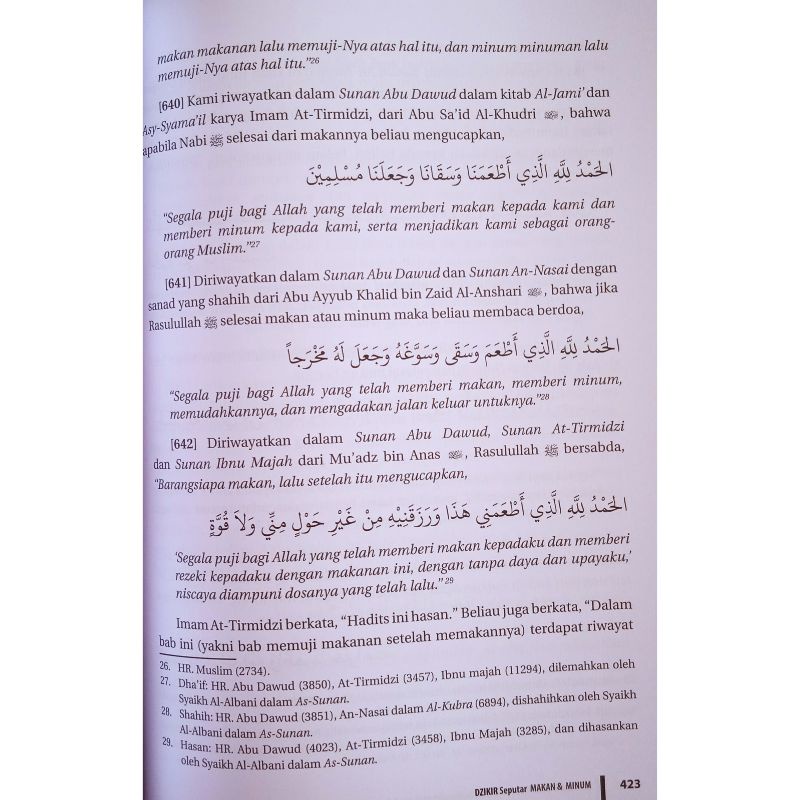 makan makanan lalu memuji-Nya atas hal itu, dan minum minuman lalu
memuji-Nya atas hal itu."26
[640] Kami riwayatkan dalam Sunan Abu Dawud dalam kitab Al-Jami' dan
Asy-Syama'il karya Imam At-Tirmidzi, dari Abu Sa'id Al-Khudri, bahwa
apabila Nabi ﷺ selesai dari makannya beliau mengucapkan,
الحَمْدُ لِلَّهِ الَّذِي أَطْعَمَنَا وَسَقَانَا وَجَعَلَنَا مُسْلِمِيْنَ
"Segala puji bagi Allah yang telah memberi makan kepada kami dan
memberi minum kepada kami, serta menjadikan kami sebagai orang-
orang Muslim."27
[641] Diriwayatkan dalam Sunan Abu Dawud dan Sunan An-Nasai dengan
sanad yang shahih dari Abu Ayyub Khalid bin Zaid Al-Anshari, bahwa jika
Rasulullah ﷺ selesai makan atau minum maka beliau membaca berdoa,
الحَمْدُ لِلَّهِ الَّذِي أَطْعَمَ وَسَقَى وَسَوَّغَهُ وَجَعَلَ لَهُ مَخْرَجاً
"Segala puji bagi Allah yang telah memberi makan, memberi minum,
memudahkannya, dan mengadakan jalan keluar untuknya."28
[642] Diriwayatkan dalam Sunan Abu Dawud, Sunan At-Tirmidzi
dan Sunan Ibnu Majah dari Mu'adz bin Anas, Rasulullah ﷺ bersabda,
"Barangsiapa makan, lalu setelah itu mengucapkan,
الحَمْدُ لِلَّهِ الَّذِي أَطْعَمَنِي هَذَا وَرَزَقَنِيْهِ مِنْ غَيْرِ حَوْلٍ مِنِّي وَلاَ قُوَّةٍ
'Segala puji bagi Allah yang telah memberi makan kepadaku dan memberi
rezeki kepadaku dengan makanan ini, dengan tanpa daya dan upayaku,'
niscaya diampuni dosanya yang telah lalu." 29
Imam At-Tirmidzi berkata, "Hadits ini hasan." Beliau juga berkata, "Dalam
bab ini (yakni bab memuji makanan setelah memakannya) terdapat riwayat
26. HR. Muslim (2734).
27. Dha'if: HR. Abu Dawud (3850), At-Tirmidzi (3457), Ibnu majah (11294), dilemahkan oleh
Syaikh Al-Albani dalam As-Sunan.
28. Shahih: HR. Abu Dawud (3851), An-Nasai dalam Al-Kubra (6894), dishahihkan oleh Syaikh
Al-Albani dalam As-Sunan.
29. Hasan: HR. Abu Dawud (4023), At-Tirmidzi (3458), Ibnu Majah (3285), dan dihasankan
oleh Syaikh Al-Albani dalam As-Sunan.
DZIKIR Seputar MAKAN & MINUM 423